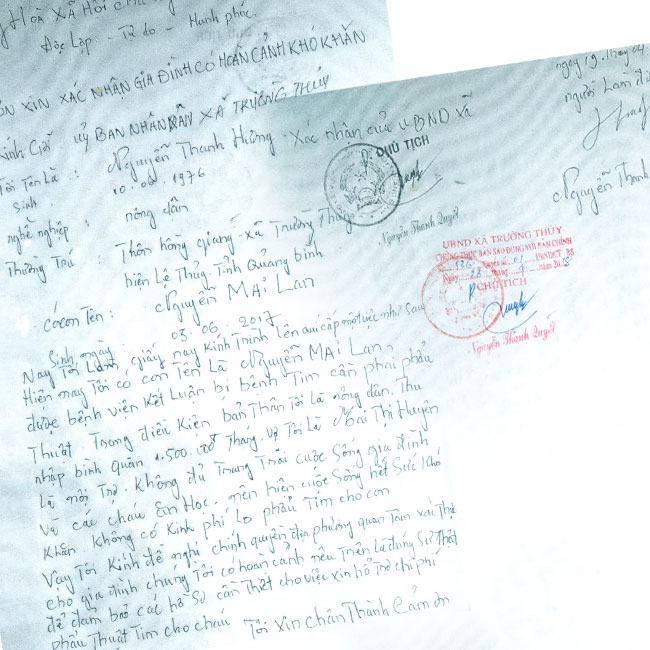 Hoà Xã Hội
Độc Lập - Tự do - Hạnh phúc
XIN XÁC NHẬN GIA ĐÌNH CÓ HOÀN CẢNH KHÓ KHĂN
Kính Gửi UỶ BAN NHÂN DÂN XÃ TRƯỜNG THỦY
Tôi Tên Là : Nguyễn Thanh Hường
Sinh : 10.06.1976
nghề nghiệp : nông dân
Thường Trú : Thôn hồng giang - xã Trường Thủy
hiện Lệ Thủy - Tỉnh Quảng bình
có con Tên : Nguyễn MAI Lan
Sinh ngày 03.06.2017
Nay Tôi Làm giấy nay Kính Trình Lên cấp một việc như Sau
Hiện nay Tôi có con Tên Là Nguyễn MAI Lan,
được bệnh viện Kết Luận bị bệnh Tim cần phải phẩu
Thuật Trong điều Kiện bản Thân Tôi là nông dân. Thu
nhập bình quân 1.500.000đ Tháng. Vợ Tôi Là Mai Thị Huyên
Là nội Trợ. Không đủ Trang Trải cuộc Sống gia đình
và các cháu Ăn Học. nên hiện cuộc Sống hết Sức Khó
Khăn Không có Kinh phí Lo phẩu Tim cho con
Vậy Tôi Kính đề nghị chính quyền địa phương quan Tâm xác Thự
cho gia đình chúng Tôi có hoàn cảnh nêu Trên Là đúng Sự Thật
để đảm bảo các hồ Sơ cần Thiết cho việc xin hổ Trợ chi phí
phẩu Thuật Tim cho cháu Tôi xin chân Thành Cảm ơn
Xác nhận của UBND xã
CHỦ TỊCH
Nguyễn Thanh Quyết
ngày 19. Tháng 04.
người Làm đ
Nguyễn Thanh
UBND XÃ TRƯỜNG THỦY
CHỨNG THỰC BẢN SAO ĐÚNG VỚI BẢN CHÍNH
Ngày 23 tháng 4 năm 2018
CHỦ TỊCH
Nguyễn Thanh Quyết